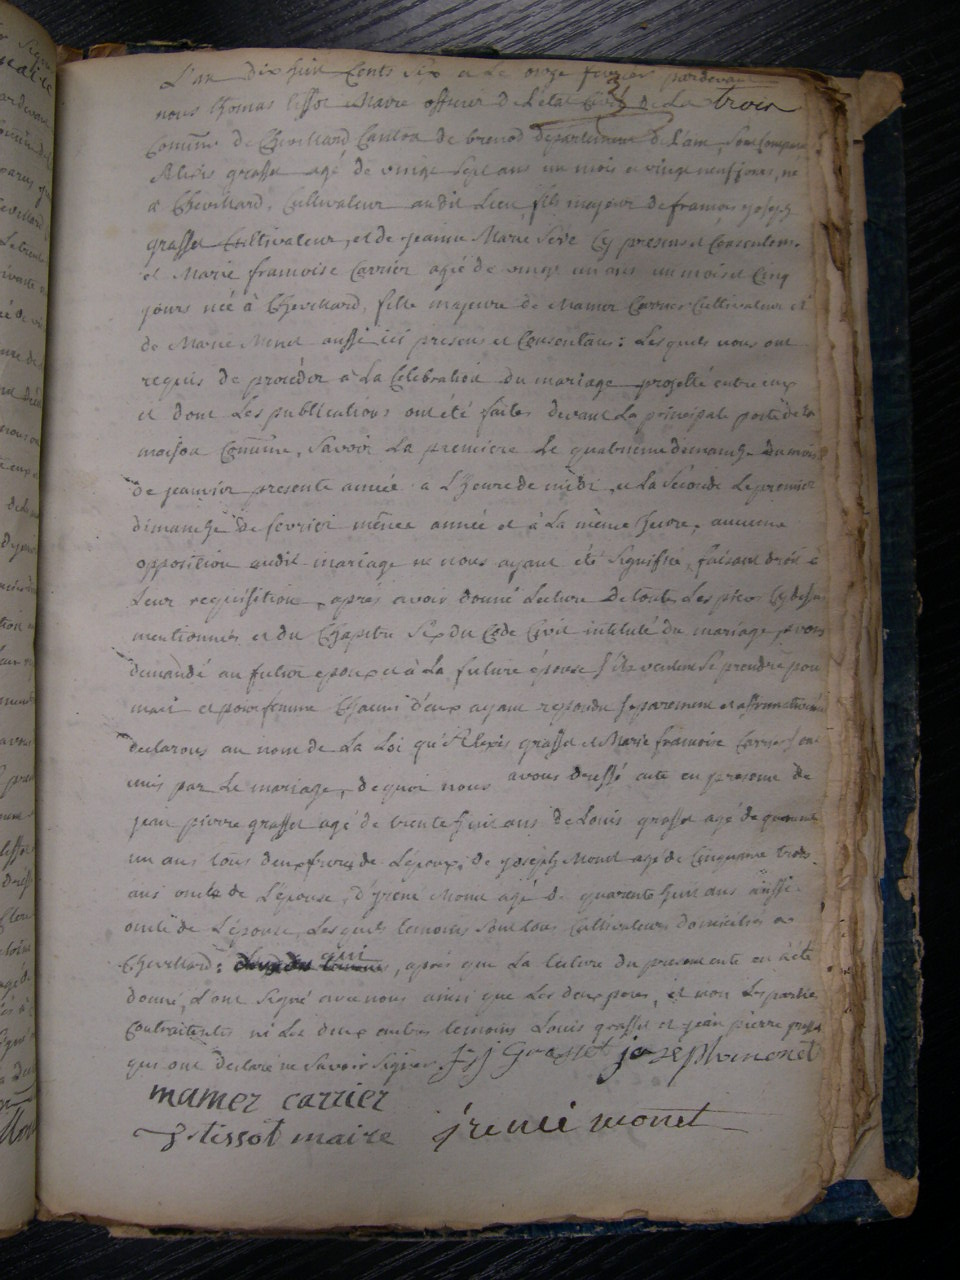 L'an dix huit Cents Six et le onze fevrier pardevant
nous thomas tissot Maire officier de L'etat Civil de La trois
Commne de Chevillard Canton de brenod departement de l'ain, Sont Comparu
Alexis grasset agé de vingt Sept ans un mois et vingt neuf jours, né
a Chevillard, Cultivateur audit Lieu, fils majeur de francois joseph
grasset Cultivateur, et de jeanne Marie Sève Cy presens et Consentens
et Marie francoise Carrier agée de vingt un ans un mois et Cinq
jours née à Chevillard, fille majeure de Mamer Carrier Cultivateur et
de Marie Monet aussi ici presens et Consentans : Lesquels nous ont
requis de procéder à La Célébration du mariage projetté entre eux
et dont Les publications ont été faites devant La principale porte de la
maison Commne, Savoir La premiere Le quatrieme dimanche du mois
de janvier presente année a L'heure de midi, et La Seconde Le premier
dimanche de fevrier même année et à La même heure, aucune
opposition audit mariage ne nous ayant été Signifiée, faisant droit à
Leur requisition, après avoir donné Lecture de toutes Les pieces Cy dessus
mentionnées et du Chapitre Six du Code Civil intitulé du mariage, avons
demandé au futur epoux et à La future épouse S'ils veulent Se prendre pour
mari et pour femme Chacun d'eux ayant repondu Separement et affirmativem
declarons au nom de La Loi qu'Alexis grasset et Marie francoise Carrier Sont
unis par Le mariage, de quoi nous avons dressé acte en presence de
jean pierre grasset agé de trente huit ans de Louis grasset agé de quarante
un ans tous deux freres de L'époux, de joseph Monet agé de Cinquante trois
ans oncle de L'epouse, d'jrené Monet agé de quarante huit ans aussi
oncle de L'épouse, Lesquels temoins Sont tous Cultivateurs domiciliés a
Chevillard : qui, après que La Lecture du present acte en a été
donné, L'ont Signé avec nous ainsi que Les deux peres, et non Les parties
Contractantes ni Les deux autres temoins Louis grasset et jean pierre grasset
qui ont declaré ne Savoir Signer f j Grasset joseph monet
mamer carrier
t tissot maire jrenée monet